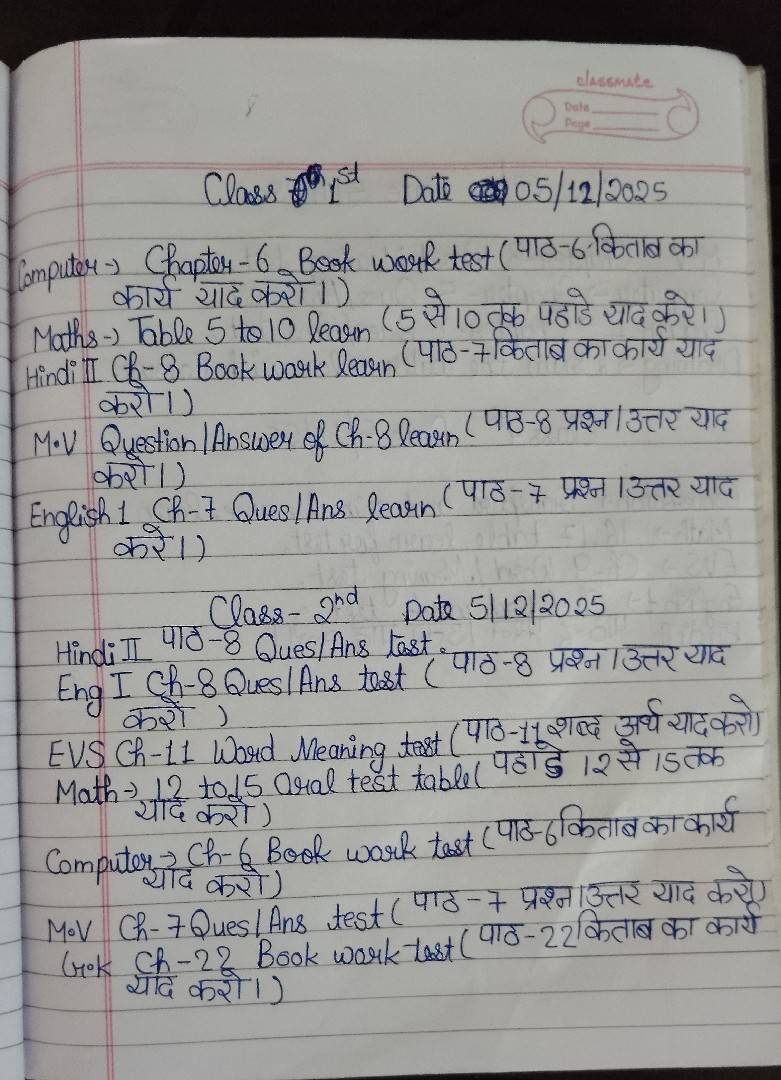 classmate
Date
Page
Class 1st Date 05/12/2025
Computer → Chapter-6 Book work test (पाठ-6 किताब का
कार्य याद करो।)
Maths → Table 5 to 10 learn (5 से 10 तक पहाडे याद करे।)
Hindi II Ch-8 Book work learn (पाठ-7 किताब का कार्य याद
करो।)
M.V Question/Answer of Ch-8 learn (पाठ-8 प्रश्न/उत्तर याद
करो।)
English 1 Ch-7 Ques/Ans learn (पाठ-7 प्रश्न/उत्तर याद
करे।)
Class-2nd Date 5/12/2025
Hindi II पाठ-8 Ques/Ans test.
Eng I Ch-8 Ques/Ans test (पाठ-8 प्रश्न/उत्तर याद
करो)
EVS Ch-11 Word Meaning test (पाठ-11 शब्द अर्थ याद करो)
Math → 12 to 15 Oral test table (पहाडे 12 से 15 तक
याद करो)
Computer → Ch-6 Book work test (पाठ-6 किताब का कार्य
याद करो)
M.V Ch-7 Ques/Ans test (पाठ-7 प्रश्न/उत्तर याद करो)
G.K Ch-22 Book work test (पाठ-22 किताब का कार्य
याद करो।)